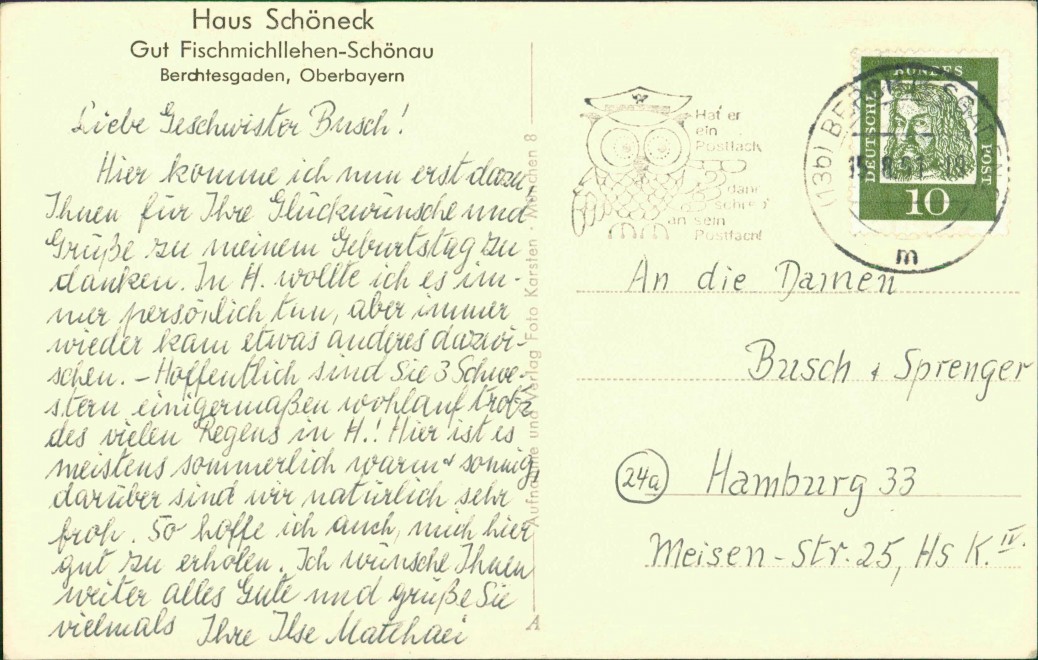 Haus Schöneck
Gut Fischmichllehen-Schönau
Berchtesgaden, Oberbayern
Liebe Geschwister Busch!
Hier komme ich nun erst dazu,
Ihnen für Ihre Glückwünsche und
Grüße zu meinem Geburtstag zu
danken. In H. wollte ich es im-
mer persönlich tun, aber immer
wieder kam etwas anderes dazwi-
schen. – Hoffentlich sind Sie 3 Schwe-
stern einigermaßen wohlauf trotz
des vielen Regens in H.! Hier ist es
meistens sommerlich warm + sonnig,
darüber sind wir natürlich sehr
froh. So hoffe ich auch, mich hier
gut zu erholen. Ich wünsche Ihnen
weiter alles Gute und grüße Sie
vielmals Ihre Ilse Matthaei
Aufnahme und Verlag Foto Karsten · München 8
A
Hat er
ein
Postfach
dann
schreib
an sein
Postfach!
(13b) BERCHTESGADEN
15.8.61
m
DEUTSCHE
BUNDES
POST
10
An die Damen
Busch + Sprenger
24a Hamburg 33
Meisen-Str. 25, Hs K. IV.